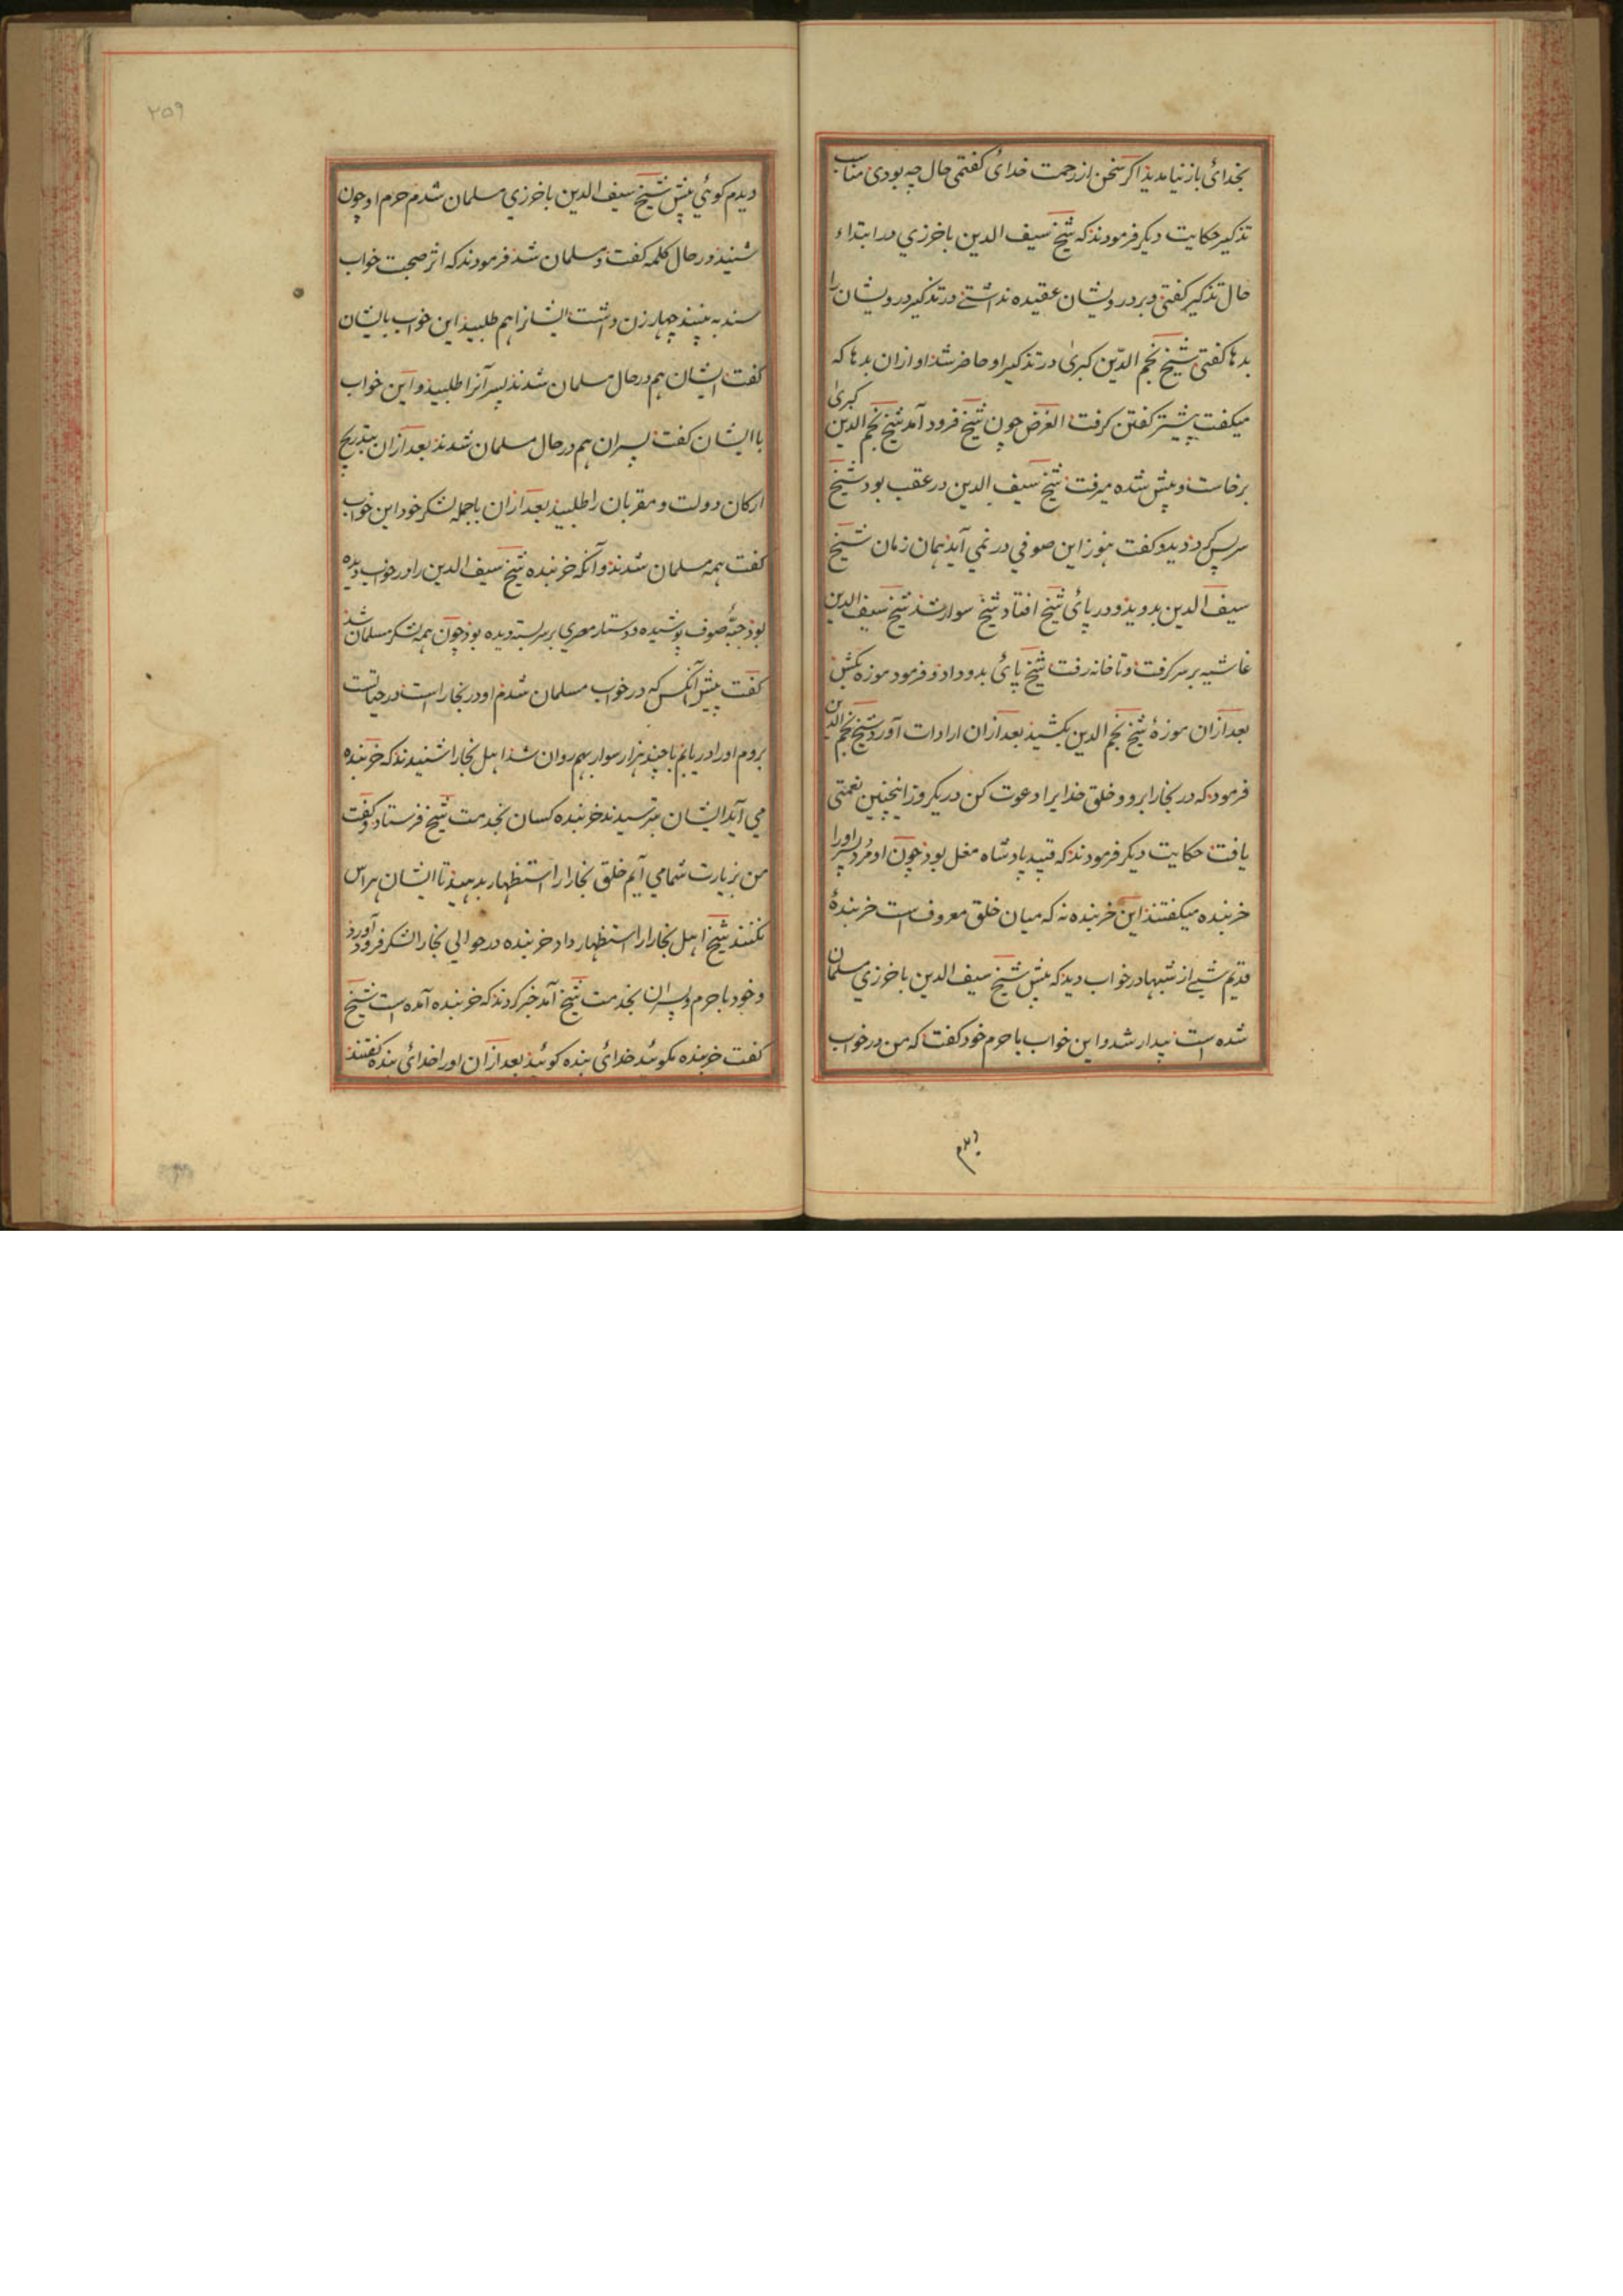 بخدائ باز نیامدید اکر سخن از رحمت خدائ کفتمی حال چه بودی مناسب
تذکیر حکایت دیکر فرمودند که شیخ سیف الدین باخرزي در ابتداء
حال تذکیر کفتی و بر درویشان عقیده نداشتے در تذکیر درویشان را
بدها کفتی شیخ نجم الدّین کبریٰ در تذکیر او حاضر شد او ازان بدها که
میکفت پیشتر کفتن کرفت الغرض چون شیخ فرود آمد شیخ نجم الدین کبریٰ
برخاست و پیش شده میرفت شیخ سیف الدین در عقب بود شیخ
سر پس کرد و دید و کفت هنوز این صوفي در نمي آید همان زمان شیخ
سیف الدین بدوید و در پائ شیخ افتاد شیخ سوار شد شیخ سیف الدین
غاشیه بر سر کرفت و تا خانه رفت شیخ پائ بدو داد و فرمود موزه بکش
بعد ازان موزۀ شیخ نجم الدین بکشید بعد ازان ارادات آورد شیخ نجم الدین
فرمود که در بخارا برو و خلق خدایرا دعوت کن در یکروز اینچنین نعمتی
یافت حکایت دیکر فرمودند که قیید پادشاه مغل بود چون او مُرد پسر اورا
خربنده میکفتند این خربنده نه که میان خلق معروف است خربندۀ
قدیم شبے از شبها در خواب دید که پیش شیخ سیف الدین باخرزي مسلمان
شده است بیدار شد و این خواب با حرم خود کفت که من در خواب
دیدم
۲۵۹
دیدم کوئي پیش شیخ سیف الدین باخرزي مسلمان شدم حرم او چون
شنید در حال کلمه کفت و مسلمان شد فرمودند که اثر صحبت خواب
سند به بینند چهار زن داشت ایشانرا هم طلبید این خواب بایشان
کفت ایشان هم در حال مسلمان شدند پسرآنرا طلبید و این خواب
با ایشان کفت پسران هم در حال مسلمان شدند بعد ازان بتدریج
ارکان دولت و مقربان را طلبید بعد ازان با جمله لشکر خود این خواب
کفت همه مسلمان شدند و آنکه خربنده شیخ سیف الدین را در خواب دیده
بود جبّۀ صوف پوشیده و دستار مصري بر سر بسته دیده بود چون همه لشکر مسلمان شد
کفت پیش آنکس که در خواب مسلمان شدم او در بخارا است در حیاتست
بروم اورا دریابم با چند هزار سوار بهم روان شد اهل بخارا شنیدند که خربنده
مي آید ایشان بترسیدند خربنده کسان بخدمت شیخ فرستاد و کفت
من بزیارت شما مي آیم خلق بخارا را استظهار بدهید تا ایشان هراس
نکنند شیخ اهل بخارا را استظهار داد خربنده در حوالي بخارا لشکر فرود آورد
و خود با حرم و پسران بخدمت شیخ آمد خبر کردند که خربنده آمده است شیخ
کفت خربنده مکوئید خدائ بنده کوئید بعد ازان اورا خدائ بنده کفتند